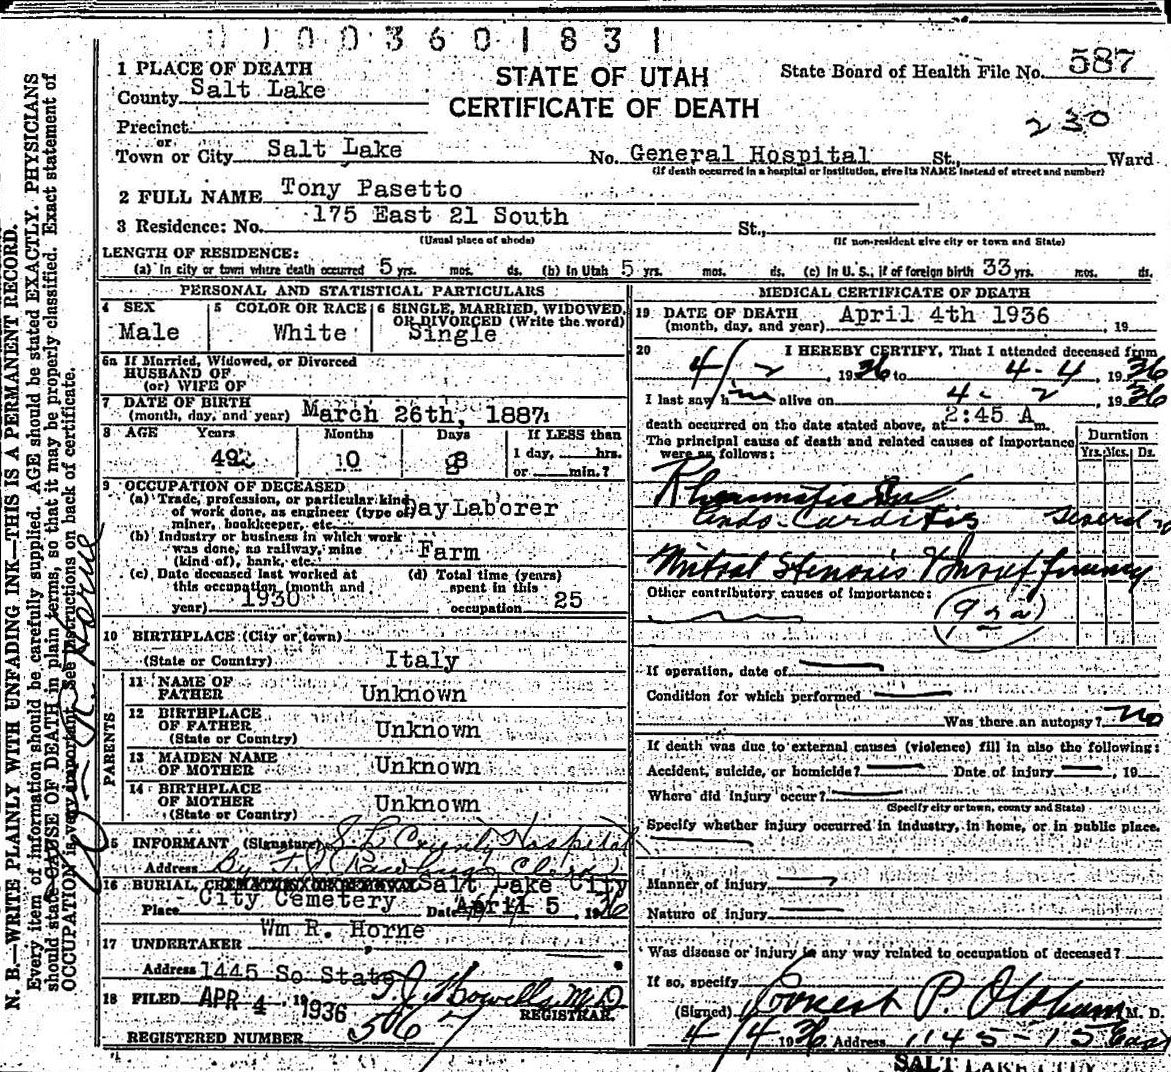 11003601831
1 PLACE OF DEATH
County Salt Lake
STATE OF UTAH
CERTIFICATE OF DEATH
State Board of Health File No. 587
230
Precinct
or
Town or City Salt Lake No. General Hospital St., Ward
(If death occurred in a hospital or institution, give its NAME instead of street and number)
2 FULL NAME Tony Pasetto
3 Residence: No. 175 East 21 South St.,
(Usual place of abode) (If non-resident give city or town and State)
LENGTH OF RESIDENCE:
(a) In city or town where death occurred 5 yrs. mos. ds. (b) In Utah 5 yrs. mos. ds. (c) In U. S., if of foreign birth 33 yrs. mos. ds.
PERSONAL AND STATISTICAL PARTICULARS
4 SEX Male
5 COLOR OR RACE White
6 SINGLE, MARRIED, WIDOWED, OR DIVORCED (Write the word) Single
6a If Married, Widowed, or Divorced
HUSBAND OF
(or) WIFE OF
7 DATE OF BIRTH
(month, day, and year) March 26th, 1887
8 AGE Years Months Days If LESS than
49 10 8 1 day, hrs.
or min.?
9 OCCUPATION OF DECEASED
(a) Trade, profession, or particular kind
of work done, as engineer (type of
miner, bookkeeper, etc. Day Laborer
(b) Industry or business in which work
was done, as railway, mine
(kind of), bank, etc. Farm
(c) Date deceased last worked at
this occupation (month and
year) 1930
(d) Total time (years)
spent in this
occupation 25
10 BIRTHPLACE (City or town)
(State or Country) Italy
PARENTS
11 NAME OF
FATHER Unknown
12 BIRTHPLACE
OF FATHER
(State or Country) Unknown
13 MAIDEN NAME
OF MOTHER Unknown
14 BIRTHPLACE
OF MOTHER
(State or Country) Unknown
15 INFORMANT (Signature) S. L. County Hospital
Address By Clerk
16 BURIAL, CREMATION OR REMOVAL Salt Lake City
Place City Cemetery Date April 5, 1936
17 UNDERTAKER Wm R. Horne
Address 1445 So State
18 FILED APR 4, 1936 T. J. Howells M.D.
REGISTRAR.
REGISTERED NUMBER 567
MEDICAL CERTIFICATE OF DEATH
19 DATE OF DEATH
(month, day, and year) April 4th 1936, 19
20 I HEREBY CERTIFY, That I attended deceased from
4/2, 1936 to 4-4, 1936
I last saw him alive on 4-2, 1936
death occurred on the date stated above, at 2:45 A m.
The principal cause of death and related causes of importance
were as follows:
Duration
Yrs. Mos. Ds.
Rheumatic
Endo-Carditis several
Mitral Stenosis &
Other contributory causes of importance:
(92a)
If operation, date of
Condition for which performed
Was there an autopsy? No
If death was due to external causes (violence) fill in also the following:
Accident, suicide, or homicide? Date of injury, 19
Where did injury occur?
(Specify city or town, county and State)
Specify whether injury occurred in industry, in home, or in public place.
Manner of injury
Nature of injury
Was disease or injury in any way related to occupation of deceased?
If so, specify
(Signed) Earnest P. Oldham M. D.
4/4 1936 Address 1145-15 East
SALT LAKE CITY
N. B.—WRITE PLAINLY WITH UNFADING INK—THIS IS A PERMANENT RECORD.
Every item of information should be carefully supplied. AGE should be stated EXACTLY. PHYSICIANS
should state CAUSE OF DEATH in plain terms, so that it may be properly classified. Exact statement of
OCCUPATION is very important. See instructions on back of certificate.